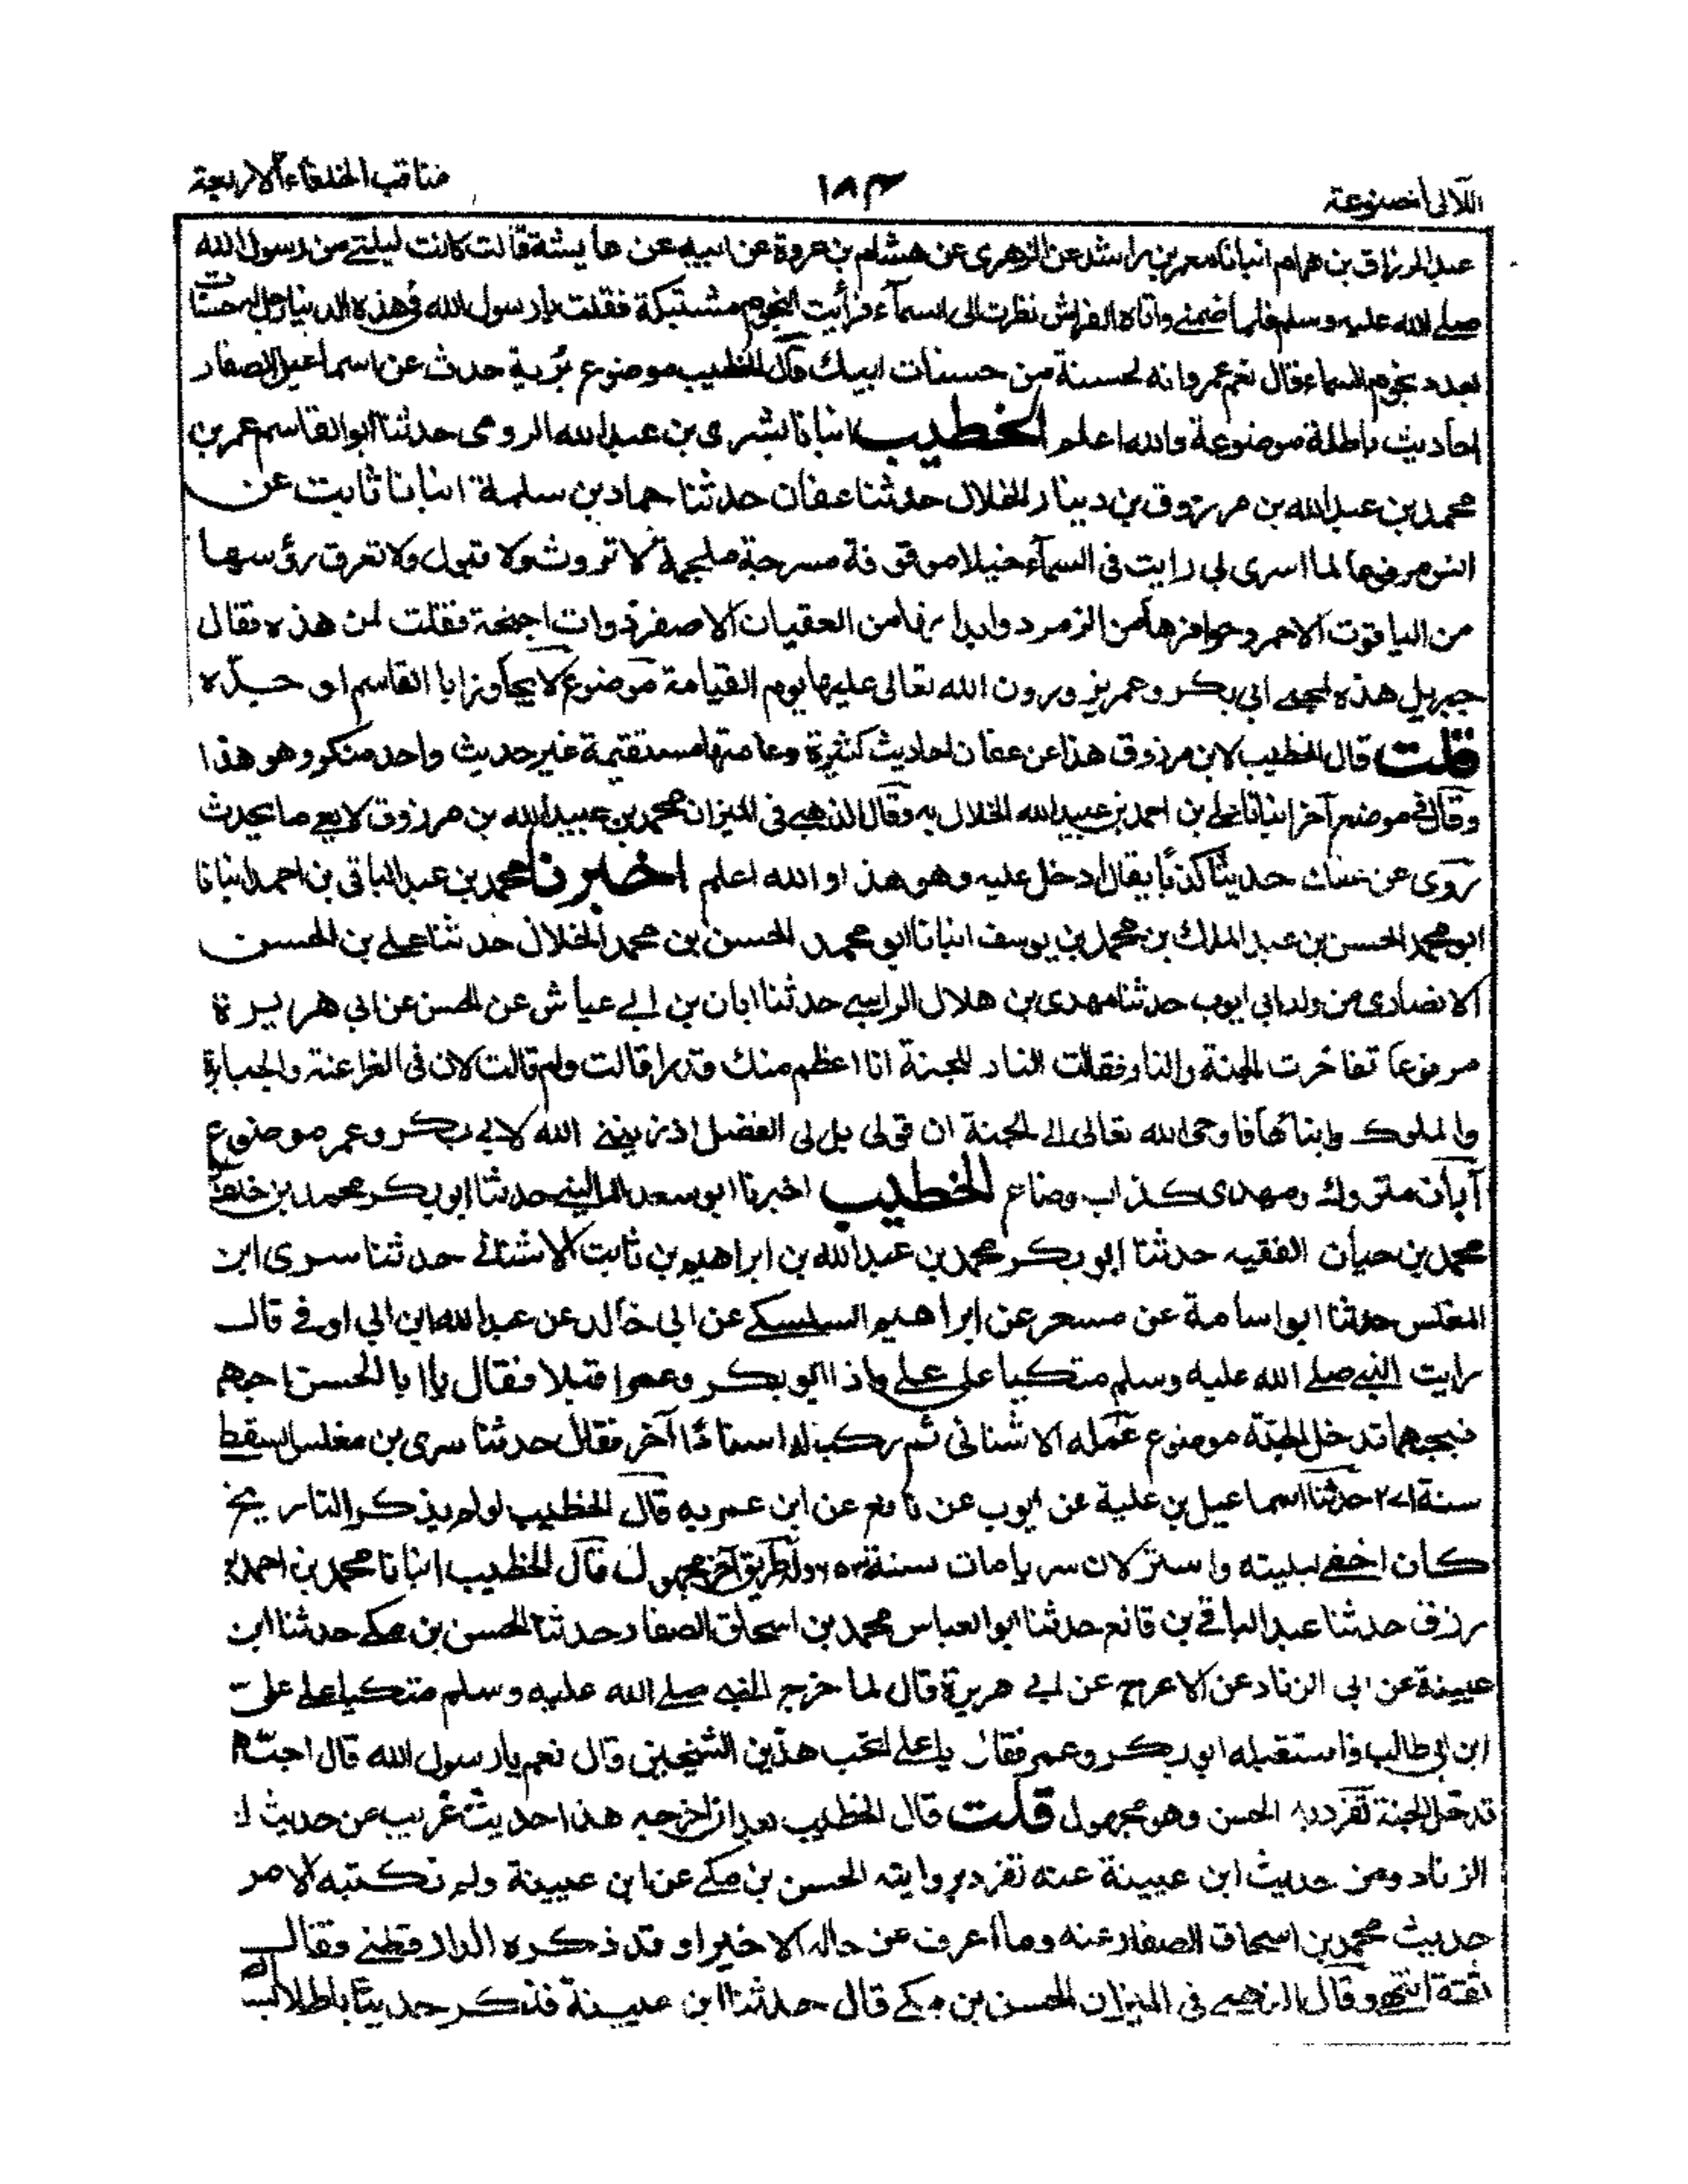 اللآلی المصنوعة ۱۸۴ مناقب الخلفاء الاربعة
عبد الرزاق بن همام انبانا معمر بن راشد عن الزهری عن هشام بن عروة عن ابیه عن عایشة قالت کانت لیلتی من رسول الله
صلے الله علیه وسلم فلما ضمنی وایاه الفراش نظرت الی السمآء فرأیت النجوم مشتبکة فقلت یا رسول الله فی هذه الدنیا رجل له حسنات
بعدد نجوم السماء قال نعم عمر وانه لحسنة من حسنات ابیك قال الخطیب موضوع بُریة حدث عن اسماعیل الصفار
احادیث باطلة موضوعة والله اعلم الخطیب انبانا بشری بن عبد الله الرومی حدثنا ابو القاسم عمر بن
محمد بن عبد الله بن مرزوق بن دینار الخلال حدثنا عفان حدثنا حماد بن سلمة انبانا ثابت عن
انس مرفوعا لما اسری بی رایت فی السمآء خیلا موقوفة مسرجة ملجمة لا تروث ولا تبول ولا تعرق رؤسها
من الیاقوت الاحمر وحوافرها من الزمرد وابدانها من العقیان الاصفر ذوات اجنحة فقلت لمن هذه فقال
جبریل هذه لمحبے ابی بکر وعمر یزورون الله تعالی علیها یوم القیامة موضوع لا یجاوز ابا القاسم او جدّه
قلت قال الخطیب لابن مرزوق هذا عن عفان احادیث کثیرة وعامتها مستقیمة غیر حدیث واحد منکر وهو هذا
وقال فی موضع آخر انبانا علی بن احمد بن عبید الله الخلال به وقال الذهبے فی المیزان محمد بن عبید الله بن مرزوق لا یعی ما یحدث
روی عن عفان حدیثا کذبًا یقال ادخل علیه وهو هذا والله اعلم اخبرنا محمد بن عبد الباقی بن احمد انبانا
ابو محمد الحسن بن عبد الملك بن محمد بن یوسف انبانا ابو محمد الحسن بن محمد الخلال حدثنا علی بن الحسن
الانصاری من ولد ابی ایوب حدثنا مهدی بن هلال الراسبے حدثنا ابان بن ابی عیاش عن الحسن عن ابی هریرة
مرفوعا تفاخرت الجنة والنار فقالت النار للجنة انا اعظم منك قدرا قالت ولم قالت لان فی الفراعنة والجبابرة
والملوك وابناءها فاوحی الله تعالی الی الجنة ان قولی بل لی الفضل اذ زیننی الله لابی بکر وعمر موضوع
آبان متروك ومهدی کذاب وضاع الخطیب اخبرنا ابو سعد المالینے حدثنا ابو بکر محمد بن خلف
محمد بن حیان الفقیه حدثنا ابو بکر محمد بن عبد الله بن ابراهیم بن ثابت الاشنانی حدثنا سری ابن
المغلس حدثنا ابو اسامة عن مسعر عن ابراهیم السکسکے عن ابی خالد عن عبد الله ابن ابی اوفی قال
رایت النبے صلے الله علیه وسلم متکیا علی علی واذا ابو بکر وعمر اقبلا فقال یا ابا الحسن احبهم
فبحبهما تدخل الجنة موضوع عمله الاشنانی ثم رکب له اسنادًا آخر فقال حدثنا سری بن مغلس السقطی
سنة ۲۷۱ حدثنا اسماعیل بن علیة عن ایوب عن نافع عن ابن عمر به قال الخطیب لو لم یذکر التاریخ
کان اخفی لبلیته واستر لان سریا مات سنة ۲۵۳ وله طریق آخر مجهول قال الخطیب انبانا محمد بن احمد بن
رزق حدثنا عبد الباقی بن قانع حدثنا ابو العباس محمد بن اسحاق الصفار حدثنا الحسن بن مکے حدثنا ابن
عیینة عن ابی الزناد عن الاعرج عن ابی هریرة قال لما خرج النبی صلے الله علیه وسلم متکیا علی علی
ابن ابی طالب فاستقبله ابو بکر وعمر فقال یا علی اتحب هذین الشیخین قال نعم یا رسول الله قال احبهما
تدخل الجنة تفرد به الحسن وهو مجهول قلت قال الخطیب بعد ان اخرجه هذا حدیث غریب عن حدیث ابی
الزناد ومن حدیث ابن عیینة عنه تفرد بروایته الحسن بن مکے عن ابن عیینة ولم نکتبه الا من
حدیث محمد بن اسحاق الصفار عنه وما اعرف عن حاله الا خیرا وقد ذکره الدارقطنے وقال
ثقة انتهی وقال الذهبے فی المیزان الحسن بن مکے قال حدثنا ابن عیینة فذکر حدیثا باطلا